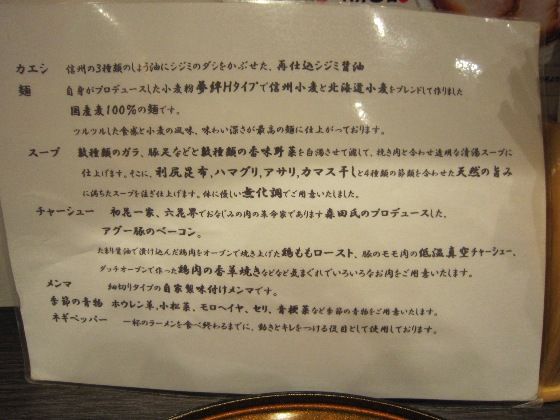 カエシ 信州の3種類のしょう油にシジミのダシをかぶせた、再仕込シジミ醤油
麺 自身がプロデュースした小麦粉夢絆Hタイプで信州小麦と北海道小麦をブレンドして作りました
国産麦100%の麺です。
ツルツルした食感と小麦の風味、味わい深さが最高の麺に仕上がっております。
スープ 数種類のガラ、豚足などと数種類の香味野菜を白濁させて濾して、挽き肉と合わせ透明な清湯スープに
仕上げます。そこに、利尻昆布,ハマグリ,アサリ,カマス干しと4種類の節類を合わせた天然の旨み
に満ちたスープを注ぎ仕上げます。体に優しい無化調でご用意いたしました。
チャーシュー 和花一家、六花界でおなじみの肉の革命家であります森田氏のプロデュースした、
アグー豚のベーコン。
たまり醤油で漬け込んだ鶏肉をオーブンで焼き上げた鶏ももロースト、豚のモモ肉の低温真空チャーシュー、
ダッチオーブンで作った鶏肉の香草焼きなどなど気まぐれでいろいろなお肉をご用意いたします。
メンマ 細切りタイプの自家製味付けメンマです。
季節の青物 ホウレン草,小松菜、モロヘイヤ、セリ、青梗菜など季節の青物をご用意いたします。
ネギペッパー 一杯のラーメンを食べ終わるまでに、動きとキレをつける役目として使用しております。